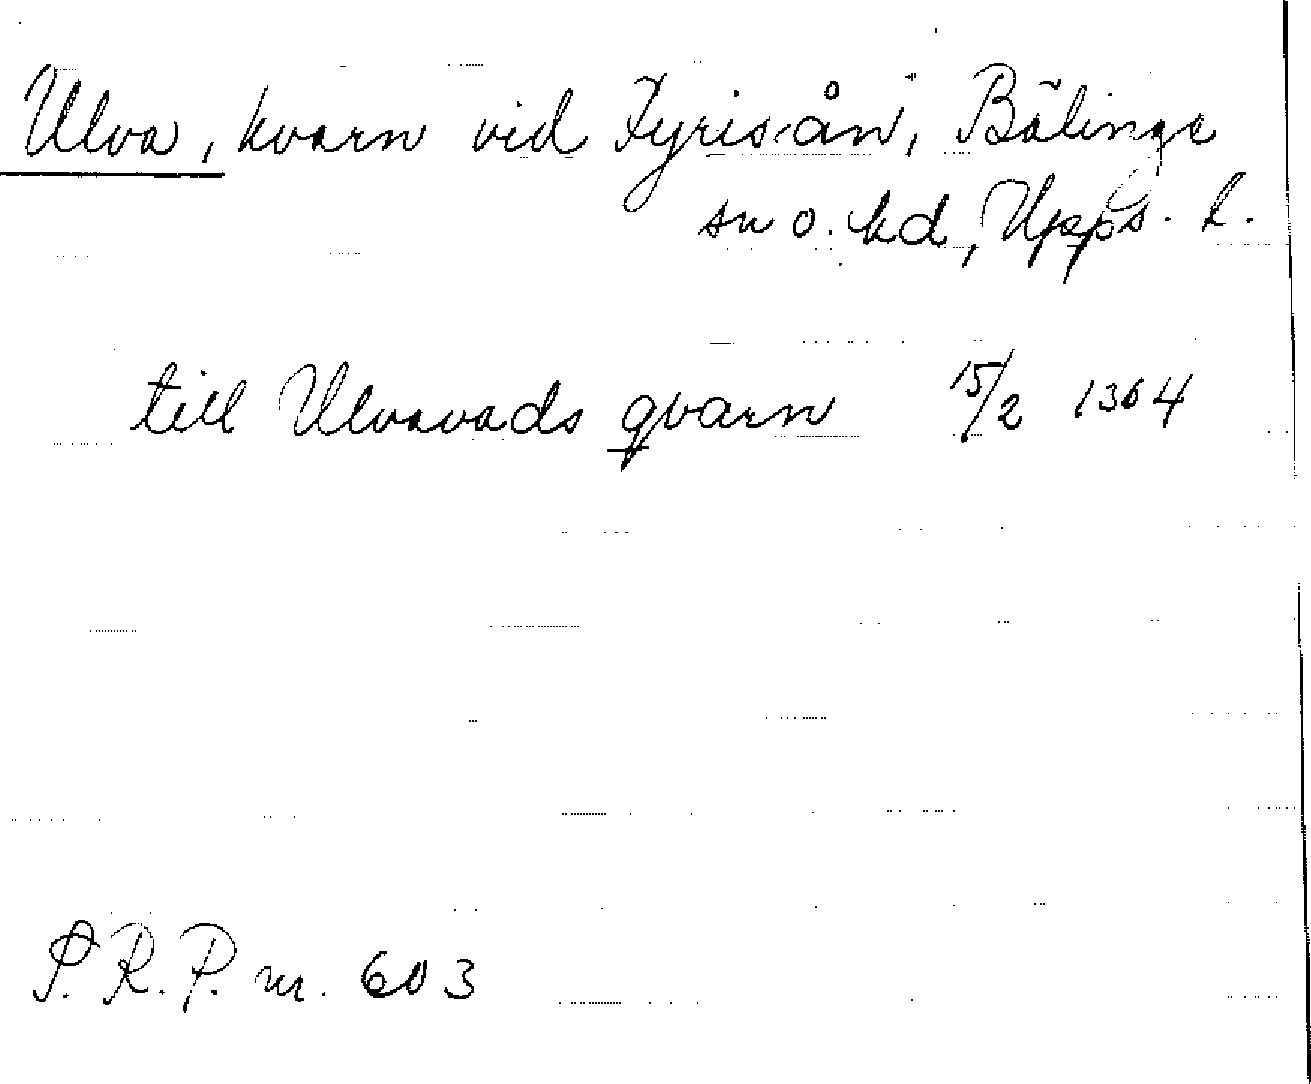 Ulva, kvarn vid Fyrisån, Bälinge
sn o. hd, Upps. l.
till Ulvavads qvarn 15/2 1364
S. R. P. nr. 603